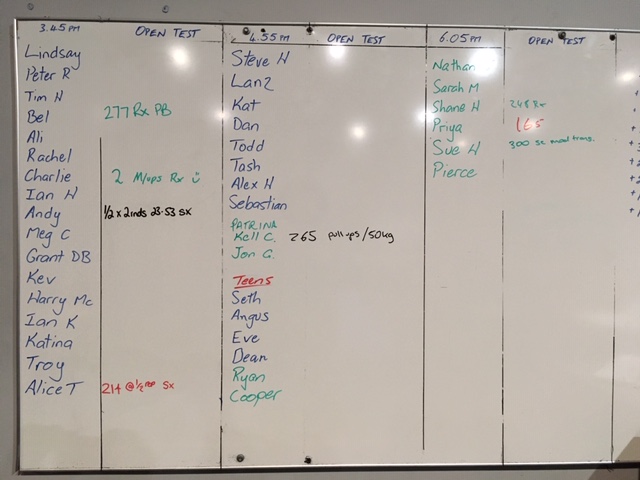 3.45PM OPEN TEST
Lindsay
Peter R
Tim H
Bel 277 Rx PB
Ali
Rachel
Charlie 2 M/ups Rx
Ian H
Andy 1/2 x 2inds 23.53 sx
Meg C
Grant DB
Kev
Harry Mc
Ian K
Katina
Troy
Alice T 214 @1/2 Sx
4.55PM OPEN TEST
Steve H
Lanz
Kat
Dan
Todd
Tash
Alex H
Sebastian
PATRINA
Kell C. 265 pull ups/50kg
Jon G.
Teens
Seth
Angus
Eve
Dean
Ryan
Cooper
6.05PM OPEN TEST
Nathan
Sarah M
Shane H 248 Rx
Priya 165
Sue H 300 sx mod trans.
Pierce